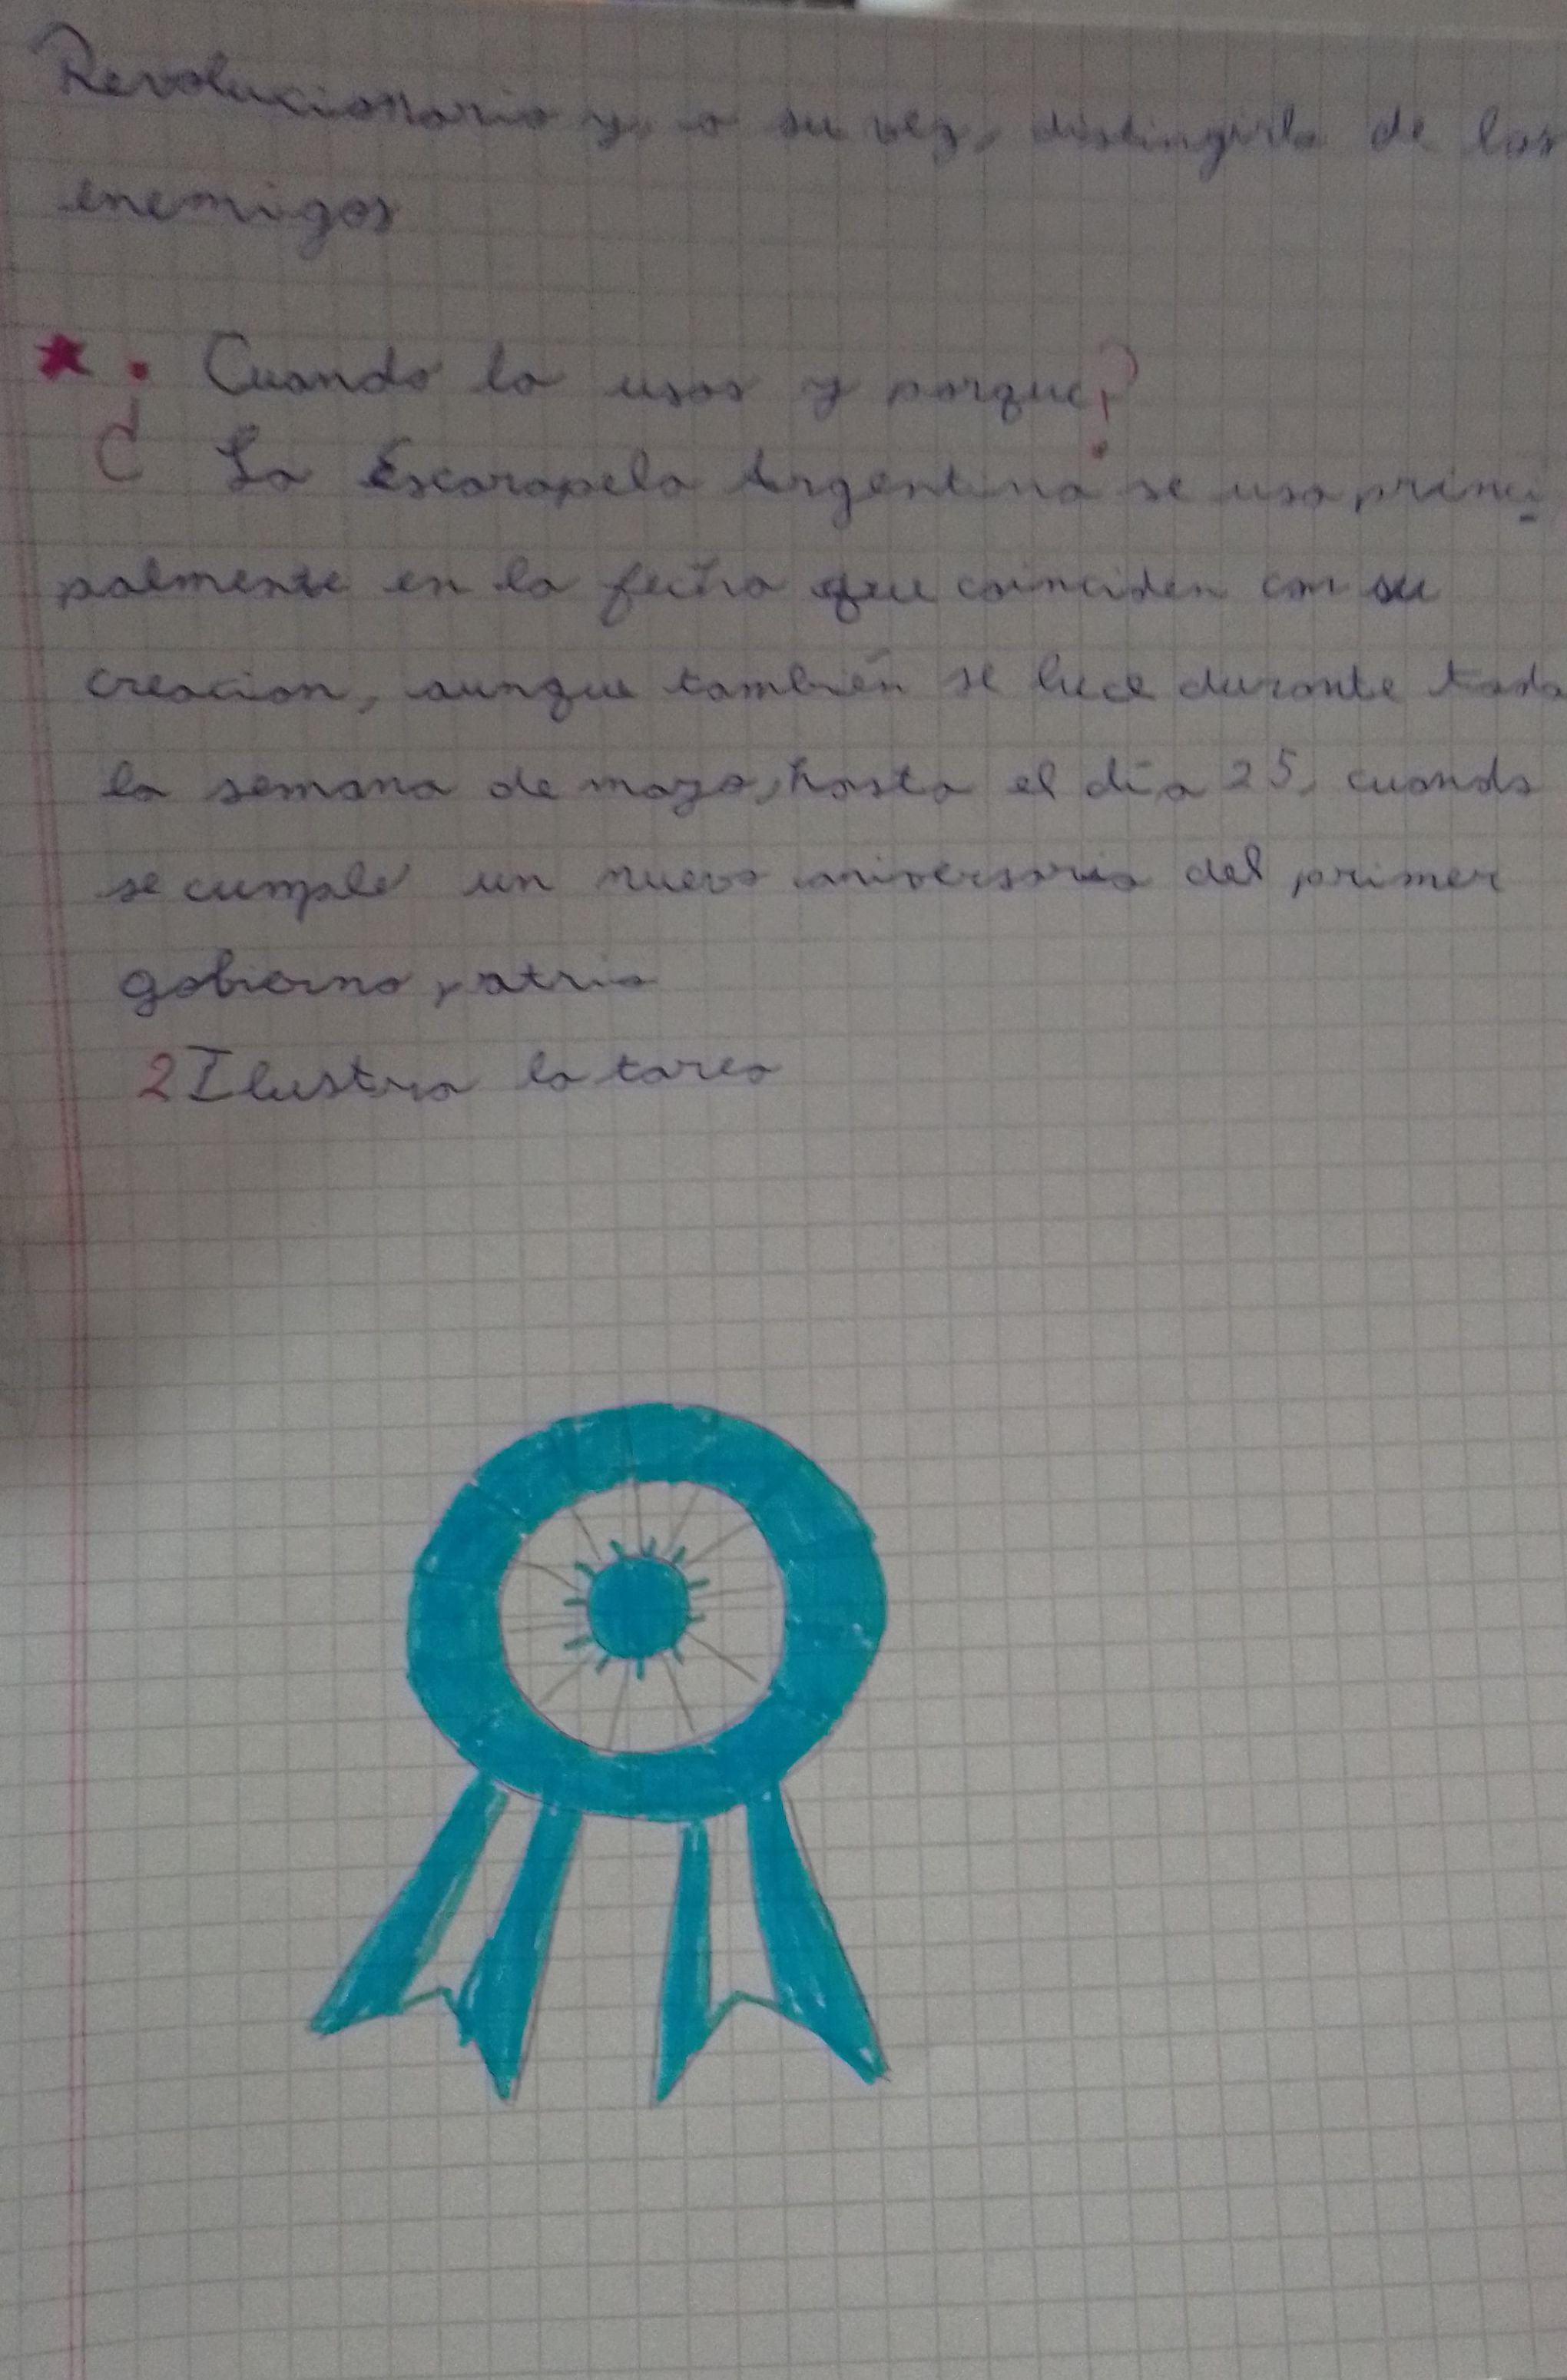 Revolucionario y, a su vez, distinguirla de los
enemigos
* ¿Cuando la usas y porque?
La Escarapela Argentina se usa princi
palmente en la fecha que coinciden con su
creacion, aunque también se luce durante toda
la semana de mayo, hasta el día 25, cuando
se cumple un nuevo aniversario del primer
gobierno patrio
2 Ilustra la tarea